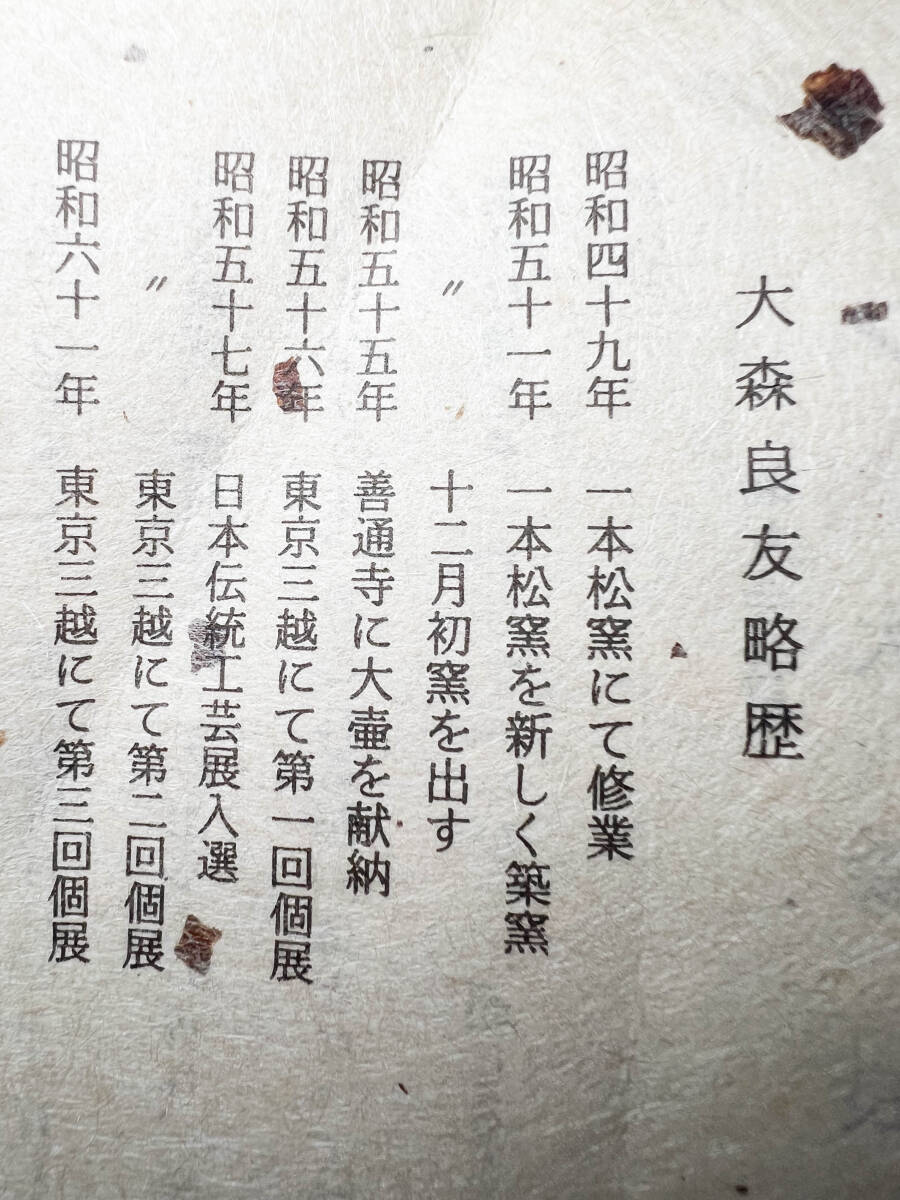 大森良友略歴
昭和四十九年 一本松窯にて修業
昭和五十一年 一本松窯を新しく築窯
〃 十二月初窯を出す
昭和五十五年 善通寺に大壷を献納
昭和五十六年 東京三越にて第一回個展
昭和五十七年 日本伝統工芸展入選
〃 東京三越にて第二回個展
昭和六十一年 東京三越にて第三回個展